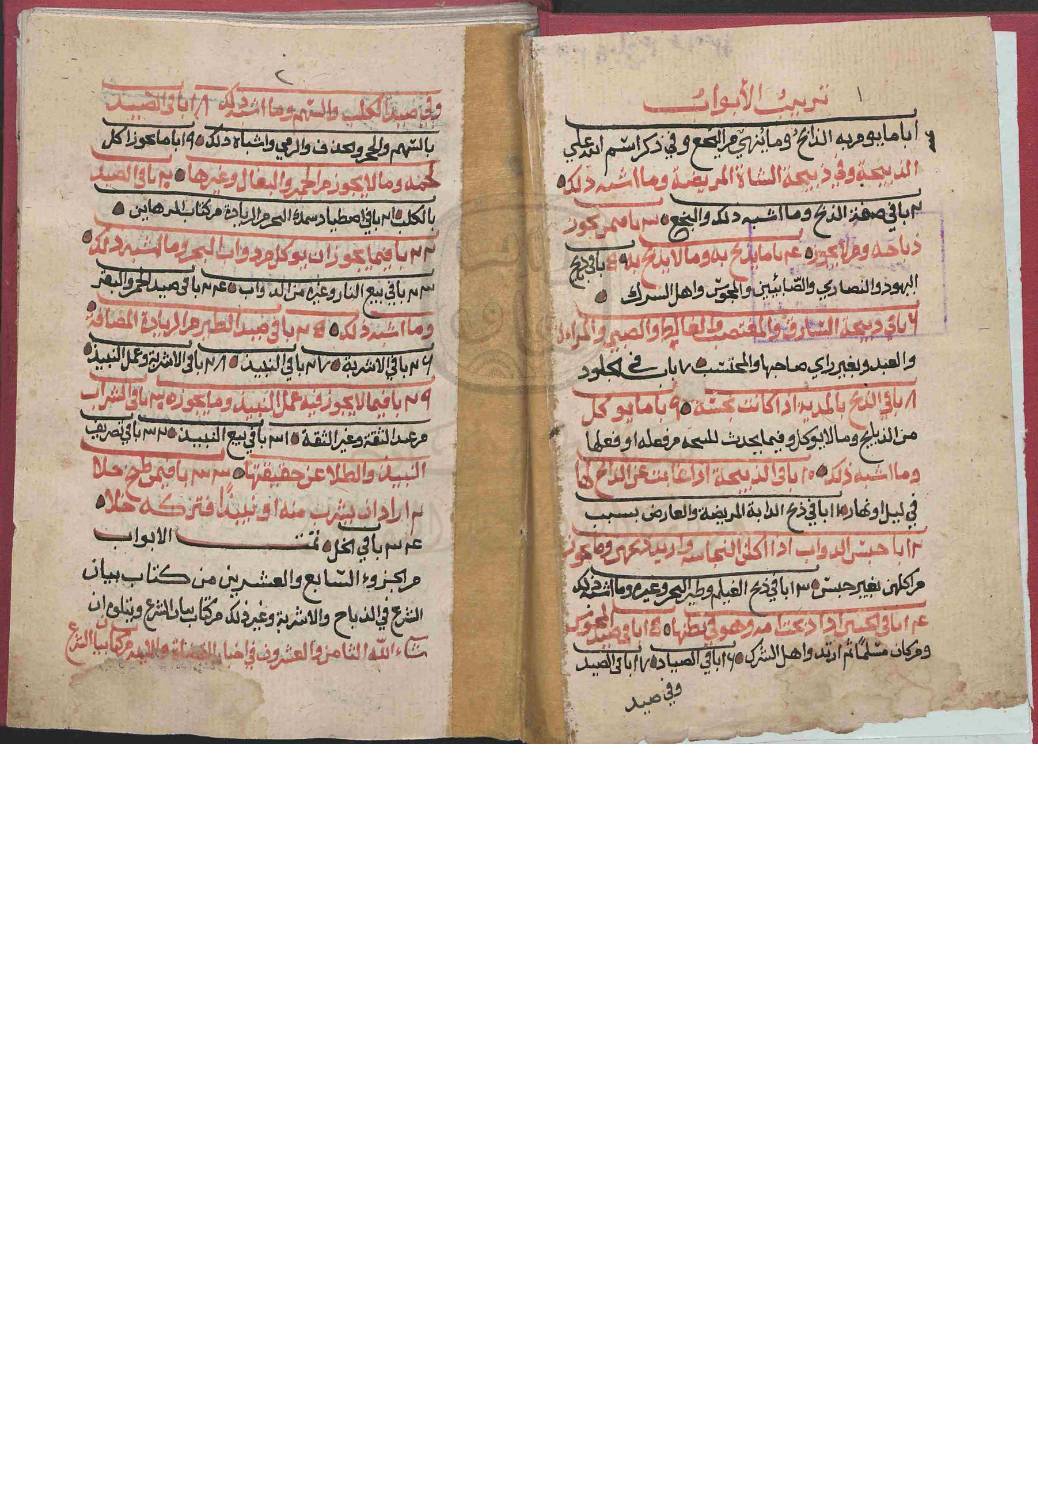 ١ ترتيب الأبواب
١ باب ما يومر به الذابح وما ينهى من النخع وفي ذكر اسم الله على
الذبيحة وفي ذبيحة الشاة المريضة وما اشبه ذلك
٢ باب في صفة الذبح وما اشبه ذلك والنخع ٣ باب من يجوز
ذباحه ومن لا يجوز ٤ باب ما يذبح به وما لا يذبح به ٥ باب في ذبح
اليهود والنصارى والصابئين والمجوس واهل الشرك
٦ باب في ذبيحة السارق والمغتصب والغالط والصبي والمراة
والعبد وبغير راي صاحبها والمحتسب ٧ باب في الجلود
٨ باب في الذبح بالمدية اذا كانت نجسة ٩ باب ما يوكل
من الذبايح وما لا يوكل وفيما يحدث للبيحه من فعله او فعلها
وما اشبه ذلك ١٠ باب في الذبيحة اذا غابت عن الذابح لها
في ليل او نهار ١١ باب في ذبح الدابة المريضة والعارض بسبب
١٢ باب حبس الدواب اذا اكلن النجاسة واريد ذبحهن وما يجوز
من اكلهن بغير حبس ١٣ باب في ذبح الغيلم وطير البحر وغيره وما اشبه ذلك
١٤ باب في الجنين اذا ذبحت امه وهو في بطنها ١٥ باب في صيد المجوس
ومن كان مسلما ثم ارتد واهل الشرك ١٦ باب في الصياد ١٧ باب في الصيد
وفي صيد
٢
وفي صيد الكلب والسهم وما اشبه ذلك ١٨ باب في الصيد
بالسهم والحجر والحذف والرمي واشباه ذلك ١٩ باب ما يجوز اكل
لحمه وما لا يجوز من الحمير والبغال وغيرها ٢٠ باب في الصيد
بالكلب ٢١ باب في اصطياد سمك البحر من الزيادة من كتاب الرهاين
٢٢ باب فيما يجوز ان يوكل من دواب البحر وما اشبه ذلك
٢٣ باب في بيع النار وغيره من الدواب ٢٤ باب في صيد الحمر والبقر
وما اشبه ذلك ٢٥ باب في صيد الطير من الزيادة المضافة
٢٦ باب في الاشربة ٢٧ باب في النبيذ ٢٨ باب في الاشربة وعمل النبيذ
٢٩ باب فيما لا يجوز فيه عمل النبيذ وما يجوز ٣٠ باب في الشراب
من عند الثقة وغير الثقة ٣١ باب في بيع النبيذ ٣٢ باب في تصريف
النبيذ والطلا عن حقيقتها ٣٣ باب فيمن طرح خلا
ثم اراد ان يشرب منه او نبيذا فتركه خلا
٣٤ باب في الخل تمت الابواب
من الجزوء السابع والعشرين من كتاب بيان
الشرع في الذباح والاشربة وغير ذلك من كتاب بيان الشرع ويتلوه ان
شاء الله الثامن والعشرون في اخبار القضاة والايمه من كتاب بيان الشرع